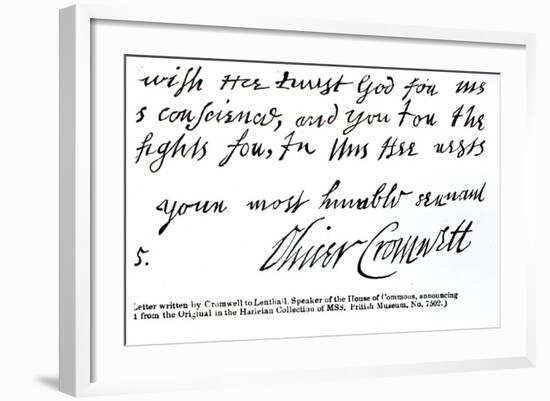 wish Hee trust God for me
s conscience, and you for the
fights for, In this Hee rests
your most humble servant
5. Oliver Cromwell
Letter written by Cromwell to Lenthall, Speaker of the House of Commons, announcing
d from the Original in the Harleian Collection of MSS. British Museum, No. 7502.)